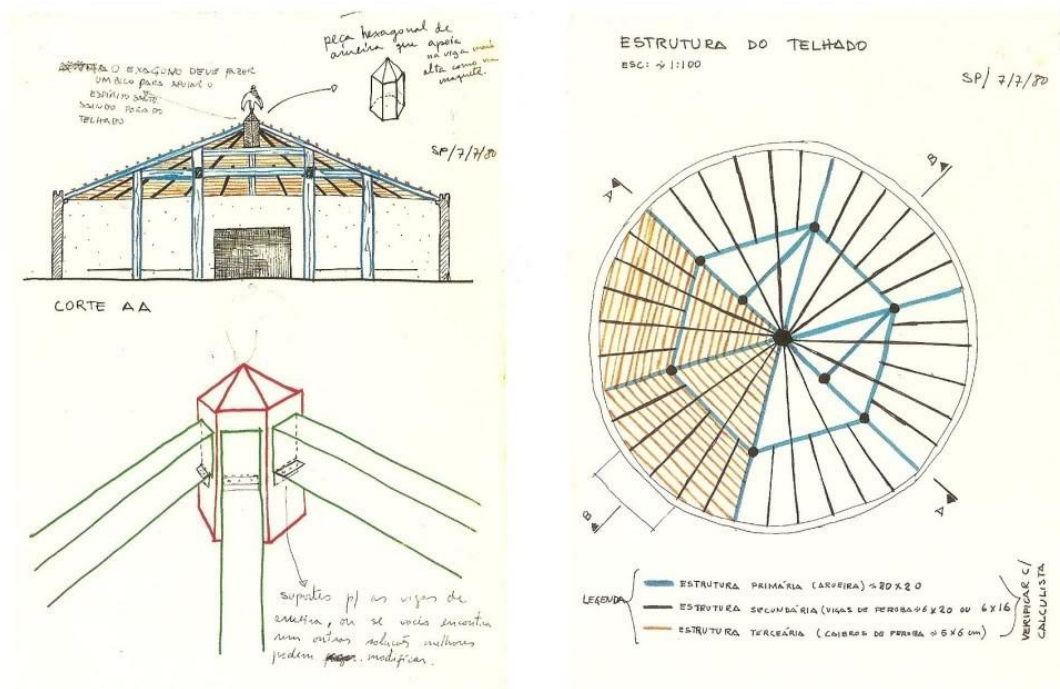 O EXAGONO DEVE FAZER
UM BICO PARA APOIAR O
ESPÍRITO SANTO
SAINDO FORA DO
TELHADO
peça hexagonal de
aroeira que apoia
na viga mais
alta como na
maquete.
SP/7/7/80
CORTE AA
suportes p/ as vigas de
aroeira, ou se vocês encontra
rem outras soluções melhores
podem modificar.
ESTRUTURA DO TELHADO
ESC: ~ 1:100
SP/ 7/7/80
A
B
B
A
LEGENDA
ESTRUTURA PRIMÁRIA (AROEIRA) ~20X20
ESTRUTURA SECUNDÁRIA (VIGAS DE PEROBA ~6X20 OU 6X16
ESTRUTURA TERCEÁRIA (CAIBROS DE PEROBA ~ 5X6 cm)
VERIFICAR C/
CALCULISTA